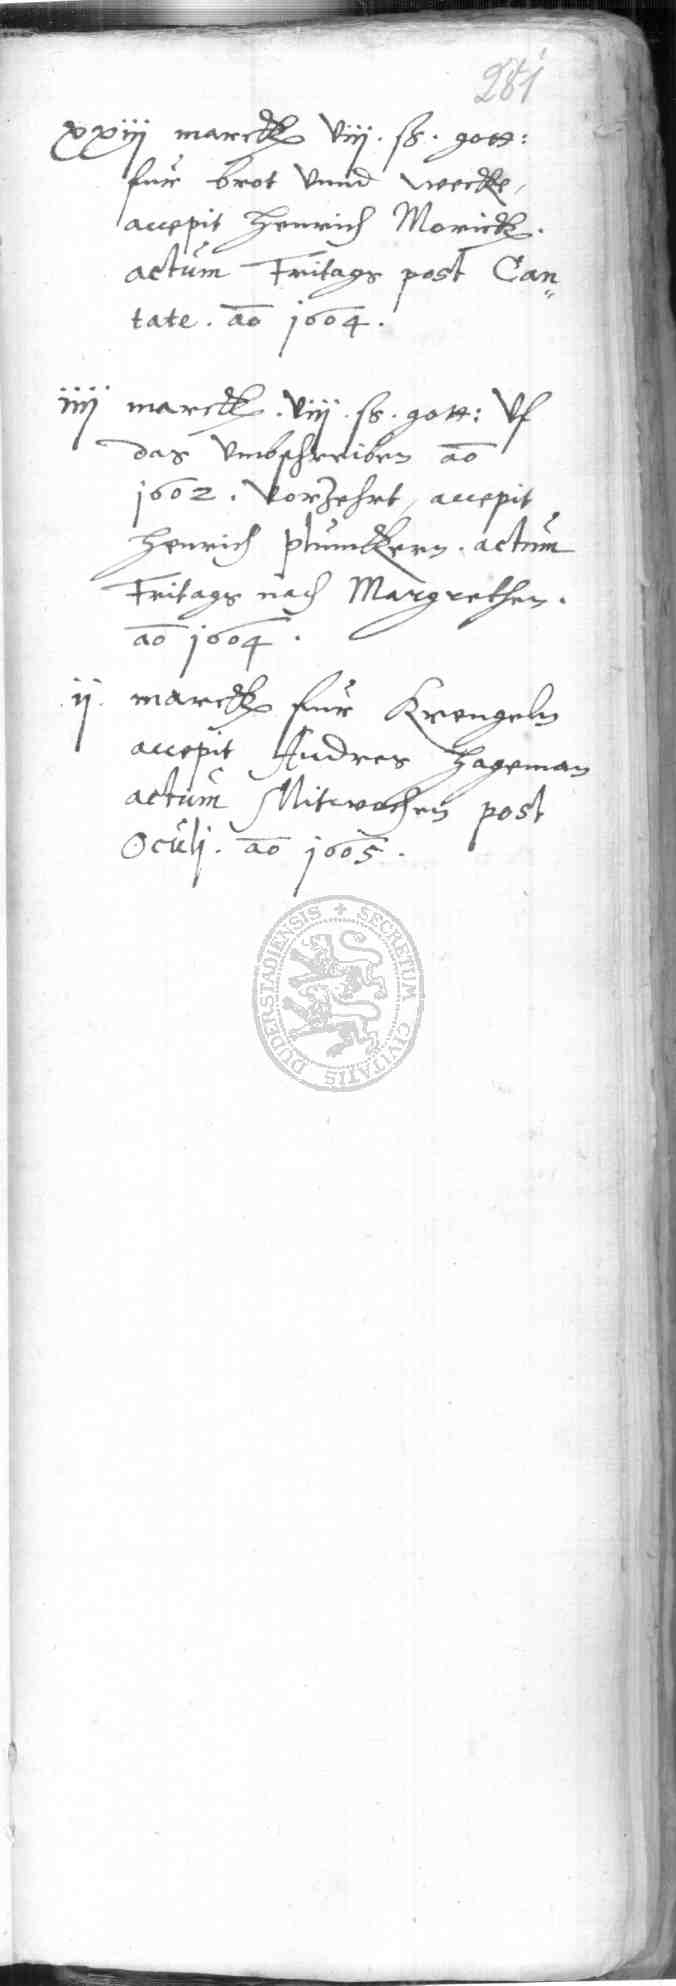 281
xxiij marck viij. ß. gott:
fur brot vnnd wecke,
accepit Henrich Morick.
actum Fritags post Can„
tate. ao 1604.
iiij marck. viij. ß. gott: Vf
das vmbschreiben ao
1602. vorzehrt, accepit
Henrich plumckern. actum
Fritags nach Margrethen.
ao 1604.
ij. marck fur Krengeln
accepit Andres Hageman
actum Mitwochen post
Oculj. ao 1605.
SECRETUM CIVITATIS DUDERSTADIENSIS